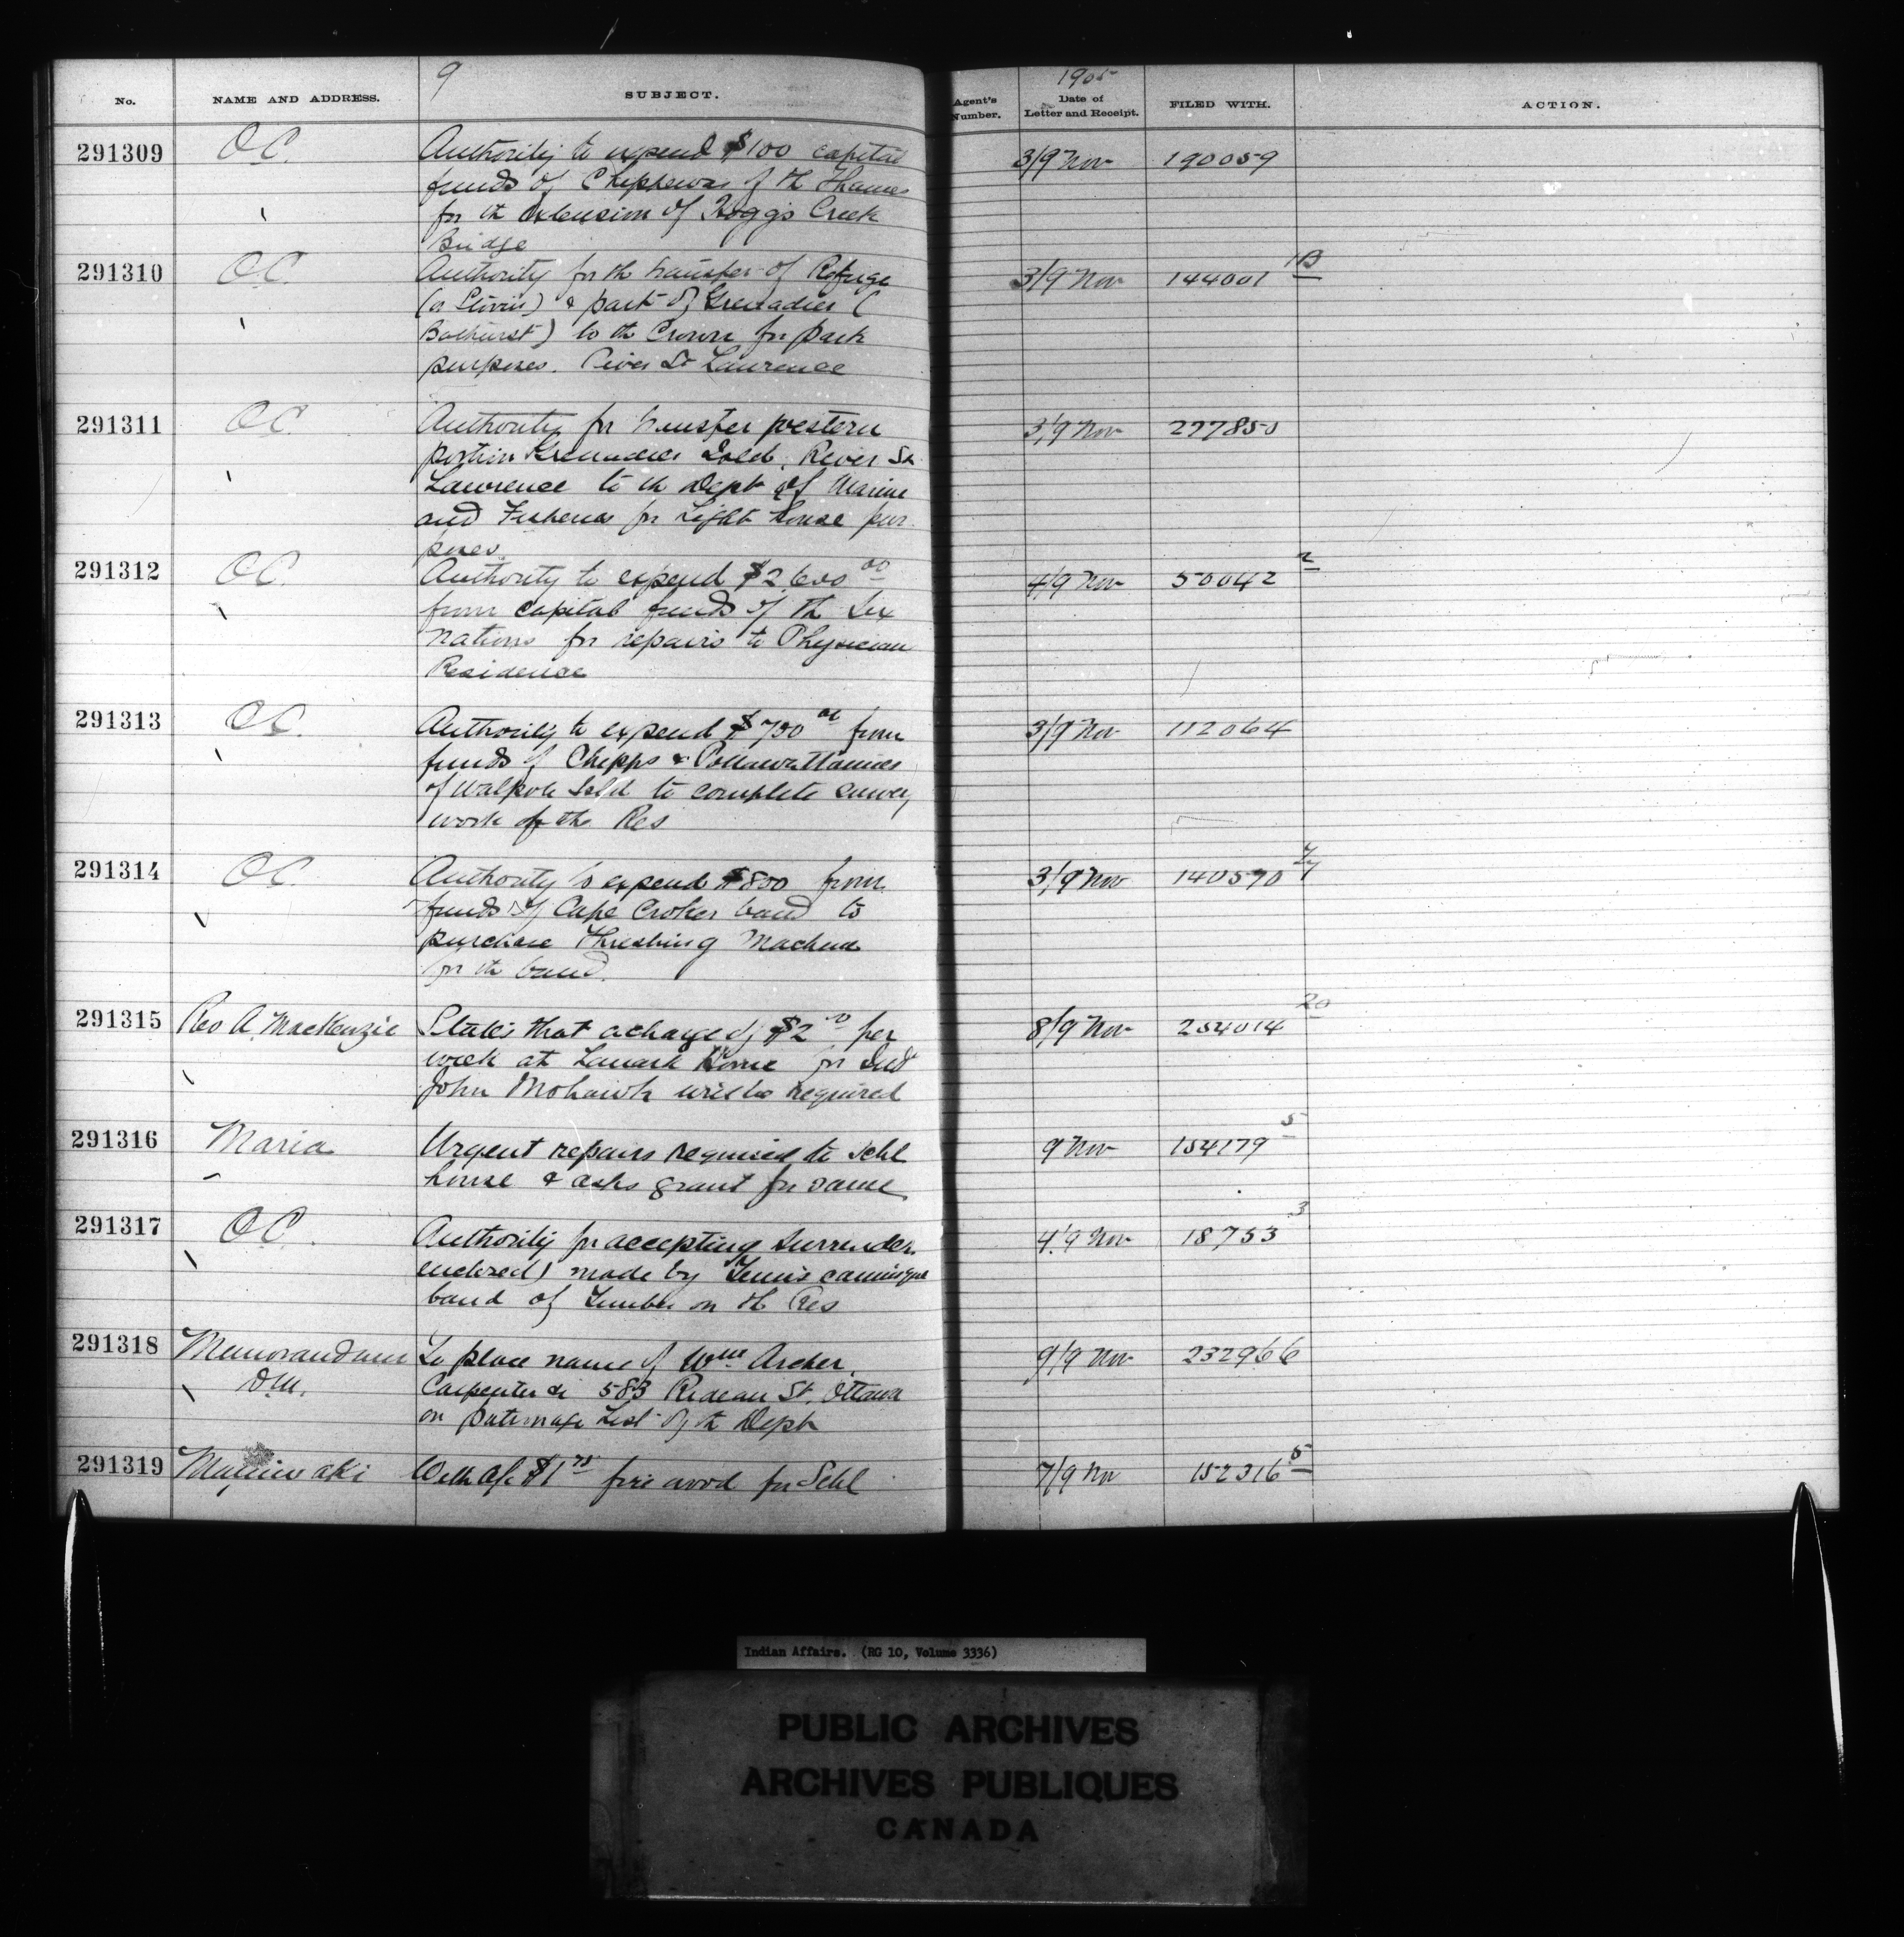 9
1905
No. NAME AND ADDRESS. SUBJECT. Agent's Number. Date of Letter and Receipt. FILED WITH. ACTION.
291309 O.C. Authority to expend $100 capital 3/9 Nov 190059
funds of Chippewas of th Thames
for th extension of Hogg's Creek
Bridge
291310 O.C. Authority for th transfer of Refuge 3/9 Nov 144001 13
(or ) & part of Grenadier (
Bathurst) to th Crown for park
purposes. River St Lawrence
291311 O.C. Authority for transfer western 3/9 Nov 277850
portion Grenadier Isld, River St
Lawrence to th Dept of Marine
and Fisheries for Light house pur
poses.
291312 O.C. Authority to expend $2,600 00 4/9 Nov 50042 2
from capital funds of th Six
Nations for repairs to Physician
Residence
291313 O.C. Authority to expend $700 00 from 3/9 Nov 112064
funds of Chipps & Pottawattamies
of Walpole Isld to complete survey
work of the Res
291314 O.C. Authority to expend $800 from 3/9 Nov 140570
funds of Cape Croker band to
purchase Threshing Machine
for th band.
291315 Rev A. MacKenzie States that a charge of $2 per 8/9 Nov 254014 20
week at Lanark Home for Ind
John Mohawk will be required
291316 Maria Urgent repairs required to schl 9 Nov 154179 5
house & asks grant for same
291317 O.C. Authority for accepting surrender 4/9 Nov 18753 3
enclosed) made by Temiscamingue
band of Timber on th Res
291318 Memorandum To place name of Wm Archer 9/9 Nov 232966
D.M. Carpenter &c 583 Rideau St. Ottawa
on patronage List of th Dept
291319 Maniwaki With a/c $1 75 fire wood for Schl 7/9 Nov 152316 5
Indian Affairs. (RG 10, Volume 3336)
PUBLIC ARCHIVES
ARCHIVES PUBLIQUES
CANADA